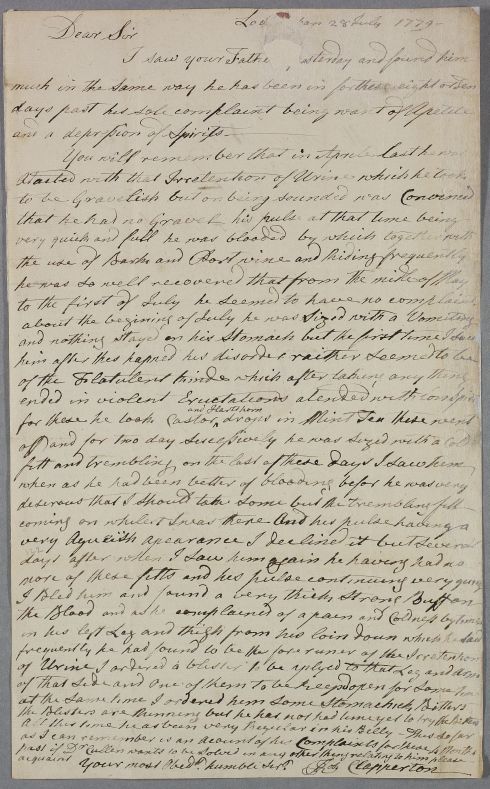 Dear Sir
28 July 1779
I saw your Fathe sterday and found him
much in the same way he has been in for these eight or ten
days past his sole complaint being want of Apetite
and a deprssion of Spirits
You will remember that in Aprile last he was
Atacted with that Irretention of Urine which he took
to be Gravelish but on being sounded was Convinced
that he had no Gravel his pulse at that time being
very quick and full he was blooded by which together with
the use of Bark and Port wine and Riding frequently
he was so well recovered that from the midle of May
to the first of July he seemed to have no complaint
about the begining of July he was Sized with a Vomiting
and nothing stayed on his Stomach but the first time I saw
him after this hapned his disorder raither seemed to be
of the Flatulent kinde which after taking any thing
ended in violent Eructations atended with
for these he took Castor and Hartshorn drops in Mint Tea these went
off and for two day sucessively he was sized with a Cold
fitt and trembling on the last of these days I saw him
when as he had been better of blooding befor he was very
desirous that I should take some but the trembling fitt
coming on whilest I was there and his pulse having a
very Agueish apearance I declined it but several
days after when I saw him again he having had no
more of these fitts and his pulse continuing very quick
I Bled him and found a very thick strong Buff on
the Blood and as he complained of a pain and Coldness by times
in his left Leg and thigh from his loin doun which he said
frequently he had found to be the forerunner of the Irretention
of Urine I ordered a blister to be aplyed to that Leg and arm
of that side and one of them to be keept open for some time
at the same time I ordered him some Stomachick Bitters
the Blisters are running but he has not had time yet to try the Bitters
All this time he has been very Regular in his Belly - Thus so far
as I can remember is an account of his Complaints for these 4 Months
past if Dr Cullen wants to be solved in any other thing relating to him please
acquaint Your most Obedt. humble Sert. Clapperton